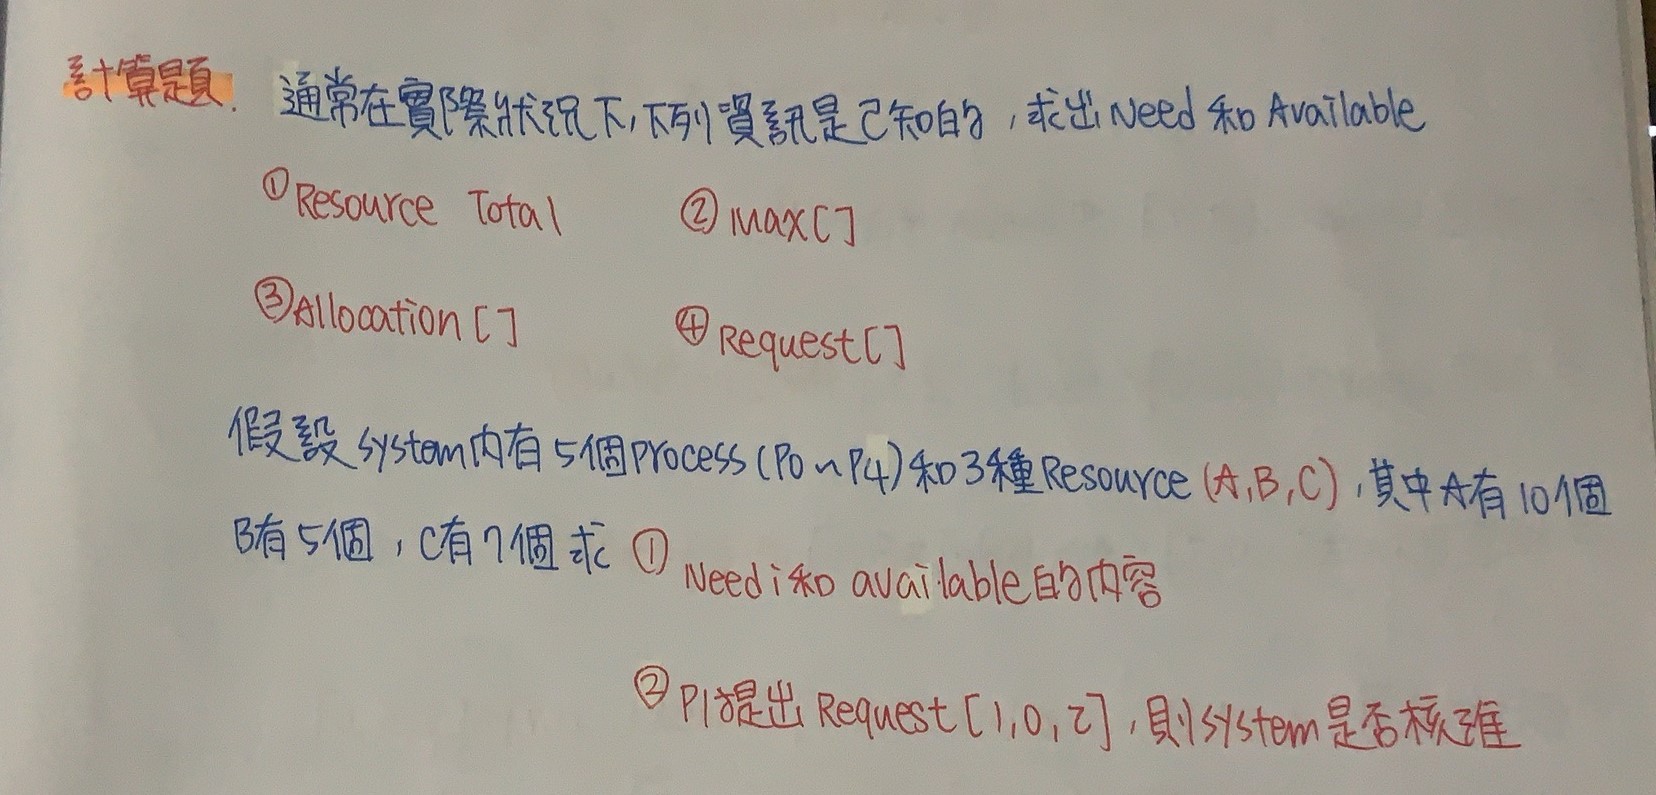 計算題. 通常在實際狀況下,下列資訊是已知的,求出Need和Available
①Resource Total ②Max[]
③Allocation[] ④Request[]
假設system內有5個process(P0~P4)和3種Resource(A,B,C),其中A有10個
B有5個,C有7個求①Needi和available的內容
②P1提出Request[1,0,2],則system是否核准